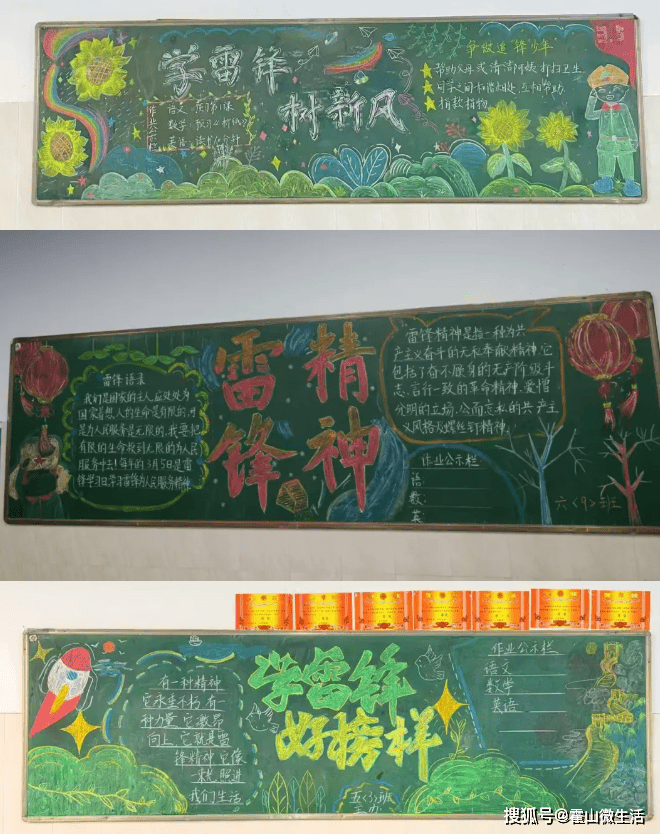 学雷锋
树新风
作业公示栏
争做追“锋”少年
帮助父母或清洁阿姨打扫卫生
同学之间和谐相处、互相帮助
捐款捐物
3.5
雷锋语录
我们是国家的主人,应处处为
国家着想,人的生命是有限的,可
是为人民服务是无限的,我要把
有限的生命投到无限的为人民
服务中去!每年的3月5日是雷
锋学习日学习雷锋为人民服务精神
雷锋
精神
雷锋精神是指一种为共
产主义奋斗的无私奉献精神,它
包括了奋不顾身的无产阶级斗
志、言行一致的革命精神、爱憎
分明的立场、公而忘私的共产主
义风格及螺丝钉精神。
作业公示栏
语:
数:
英:
六(9)班
有一种精神
它永生不朽,有一
种力量,它激昂
向上,它就是雷
锋精神,它像
一束光照进
我们生活
学雷锋
好榜样
五(3)班
主办
作业公示栏
语文
数学
英语
搜狐号@霍山微生活